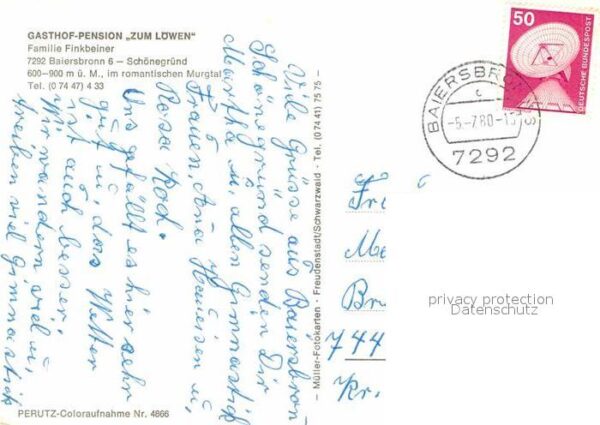 GASTHOF-PENSION „ZUM LÖWEN"
Familie Finkbeiner
7292 Baiersbronn 6 – Schönegründ
600–900 m ü. M., im romantischen Murgtal
Tel. (0 74 47) 4 33
Viele Grüsse aus Baiersbronn-
Schönegrund senden Dir
Martha u. allen Gimnastik
Frauen, Ana u,
Rosa Koch.
Uns gefällt es hier sehr
gut u. das Wetter
ist auch besser.
Wir wandern viel u,
treiben viel Gimnastik
PERUTZ-Coloraufnahme Nr. 4866
– Müller-Fotokarten · Freudenstadt/Schwarzwald · Tel. (0 74 41) 75 75 –
50
DEUTSCHE BUNDESPOST
BAIERSBRONN
c
-5.-7.80-
7292
Fr
Me
Br
744
Kr.
privacy protection
Datenschutz